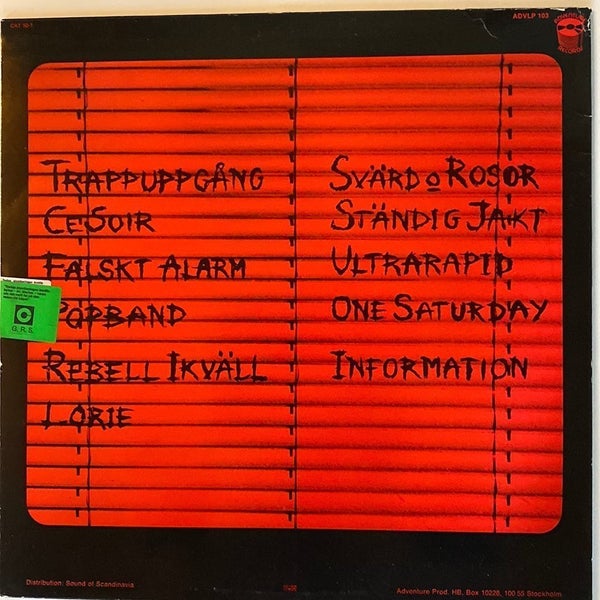 CAT 52-1
ADVLP 103
ADVENTURE
RECORDS
TRAPPUPPGÅNG
CE SOIR
FALSKT ALARM
POPBAND
REBELL IKVÄLL
LORIE
SVÄRD O ROSOR
STÄNDIG JAKT
ULTRARAPID
ONE SATURDAY
INFORMATION
G.R.S.
Distribution: Sound of Scandinavia
Adventure Prod. HB, Box 10228, 100 55 Stockholm